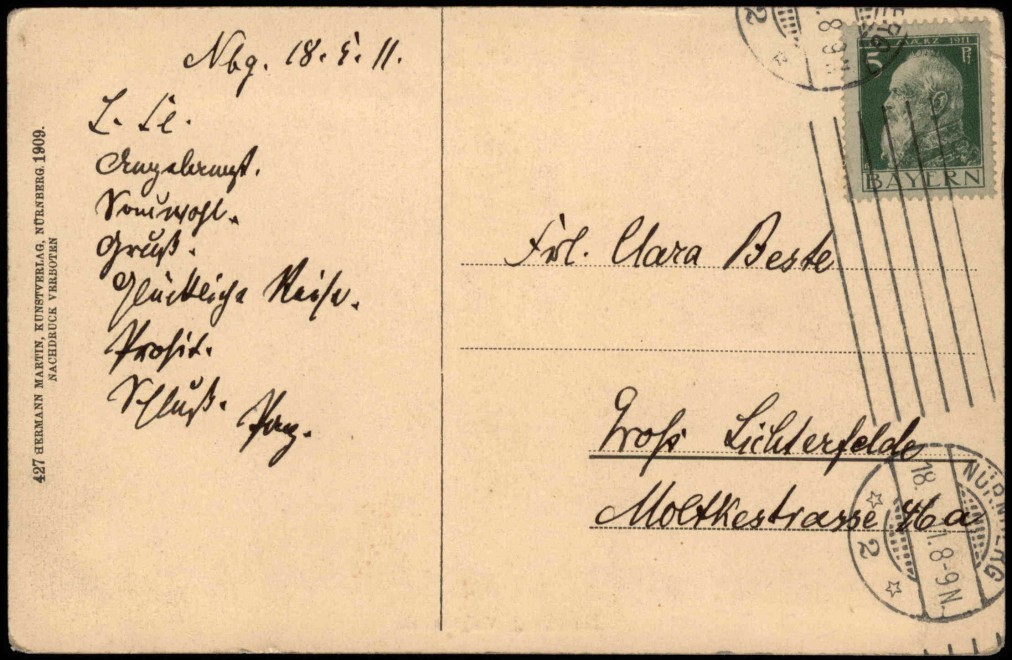 Nbg. 18.5.11.
L. Cl.
Angelangt.
Sauwohl.
Gruß.
Glückliche Reise.
Prosit.
Schluß.
427 HERMANN MARTIN, KUNSTVERLAG, NÜRNBERG. 1909.
NACHDRUCK VERBOTEN
5 Pf
1911
BAYERN
Frl. Clara Beste
Gross Lichterfelde
Moltkestrasse 46a
NÜRNBERG
8-9N.
2